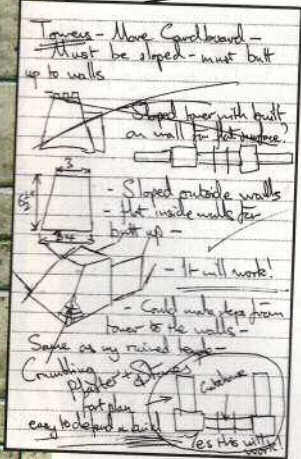 Towers - More Cardboard -
Must be sloped - must butt
up to walls
Sloped tower with built
on wall for flat surface.
3
- Sloped outside walls
- flat inside walls for
butt up -
- It will work!
- Could make steps from
tower to the walls -
Same as my ruined
Crumbling
plaster + Stones
fort plan
easy to defend
Gatehouse
Yes this will
work!